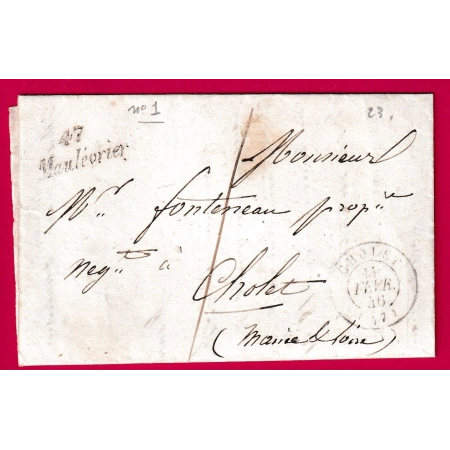 no 1
23.
47
Maulévrier
Monsieur
Mr. fonteneau propre
negt à
Cholet
(Maine & Loire)
CHOLET
11
FEVR.
46
(47)